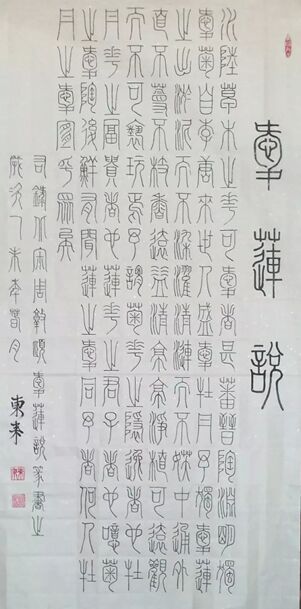 愛蓮說
水陸草木之花可愛者甚蕃晉陶淵明獨
愛菊自李唐來世人盛愛牡丹予獨愛蓮
之出淤泥而不染濯清漣而不妖中通外
直不蔓不枝香遠益清亭亭淨植可遠觀
而不可褻玩焉予謂菊花之隱逸者也牡
丹花之富貴者也蓮花之君子者也噫菊
之愛陶後鮮有聞蓮之愛同予者何人牡
丹之愛宜乎眾矣
右錄北宋周敦頤愛蓮說篆書之
歲次未年春月 東來